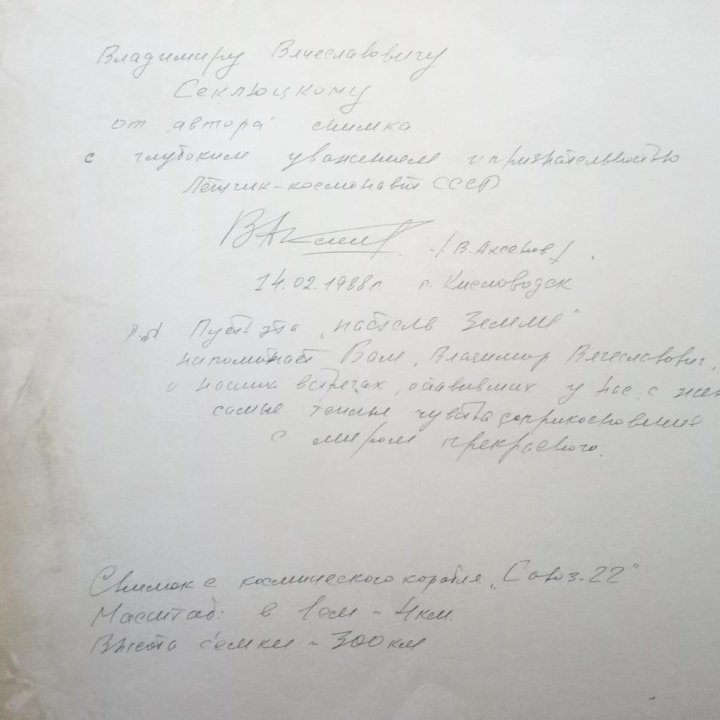 Владимиру Вячеславовичу
Секлюцкому
от "автора" снимка
с глубоким уважением и признательностью
Лётчик-космонавт СССР
ВАксенов /В. Аксенов/.
14.02.1988г г. Кисловодск
P.S. Пусть эта "пастель Земли"
напоминает Вам, Владимир Вячеславович,
о наших встречах, оставивших у нас с
самые теплые чувства соприкосновения
с миром прекрасного.
Снимок с космического корабля "Союз-22"
Масштаб: в 1см ~ 4км.
Высота съемки ~ 300км